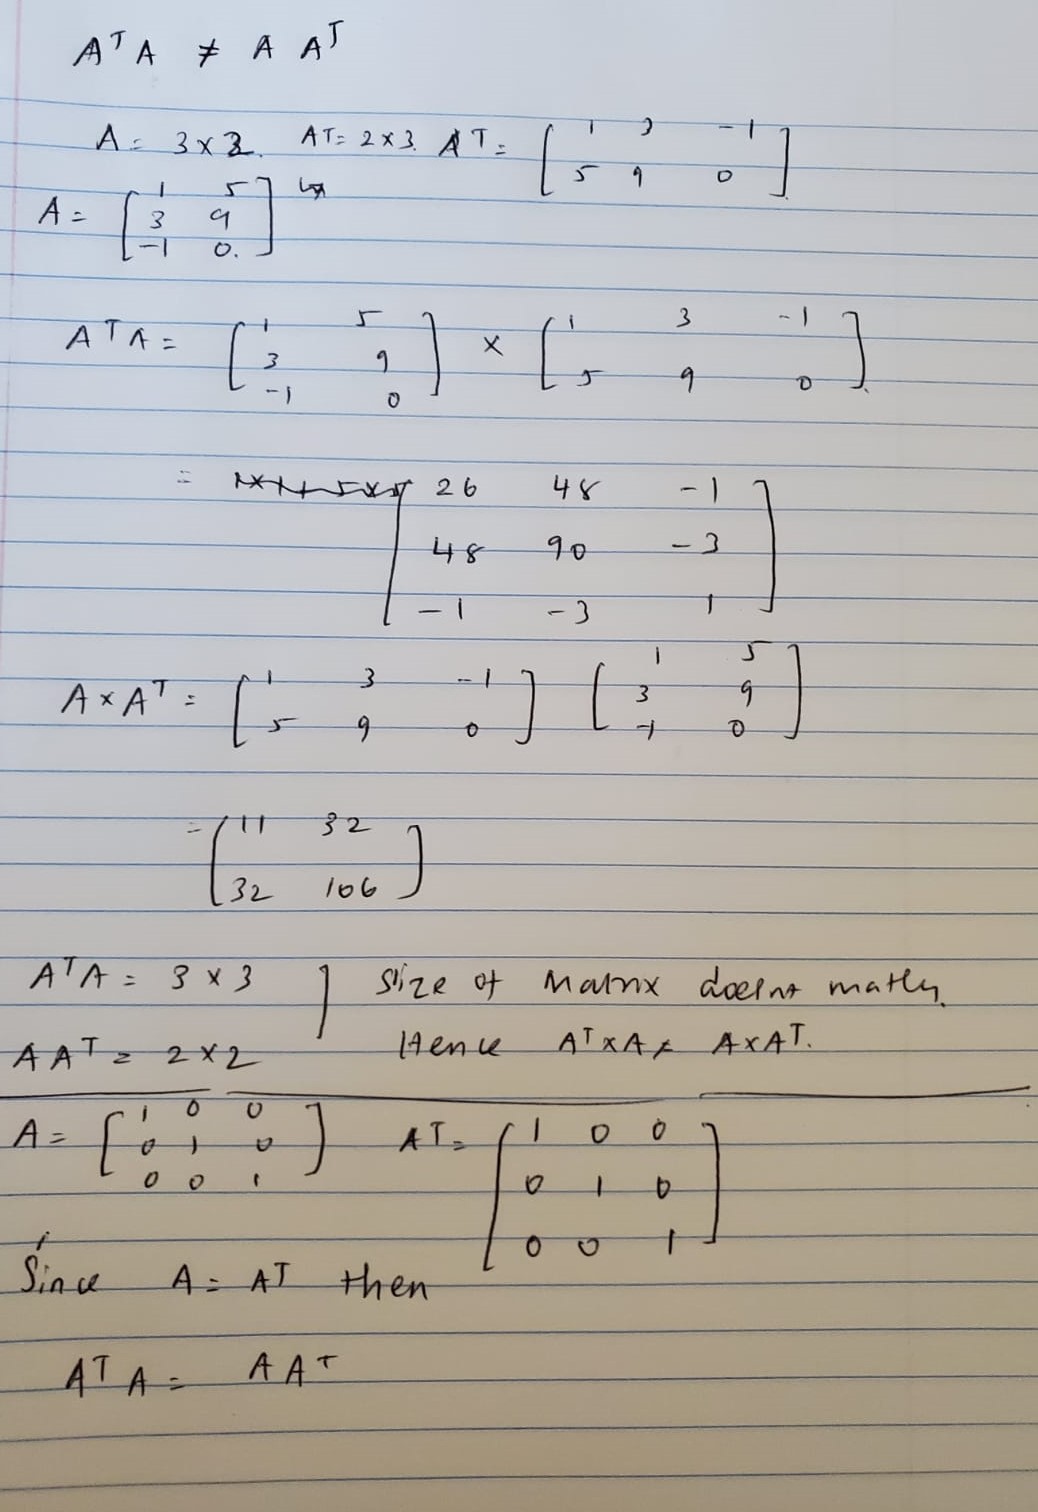 Aᵀ A ≠ A Aᵀ
A = 3x2. AT = 2x3. AT = [ 1 3 -1
5 9 0 ]
A = [ 1 5
3 9
-1 0. ]
Aᵀ A = [ 1 5
3 9
-1 0 ] x [ 1 3 -1
5 9 0 ].
= [ 26 48 -1
48 90 -3
-1 -3 1 ]
A x Aᵀ = [ 1 3 -1
5 9 0 ] [ 1 5
3 9
-1 0 ]
= [ 11 32
32 106 ]
Aᵀ A = 3 x 3 ] Size of Matrix doesnt
A Aᵀ = 2 x 2 Hence Aᵀ x A ≠ A x AT.
A = [ 1 0 0
0 1 0
0 0 1 ] AT = [ 1 0 0
0 1 0
0 0 1 ]
Since A = AT then
Aᵀ A = A Aᵀ